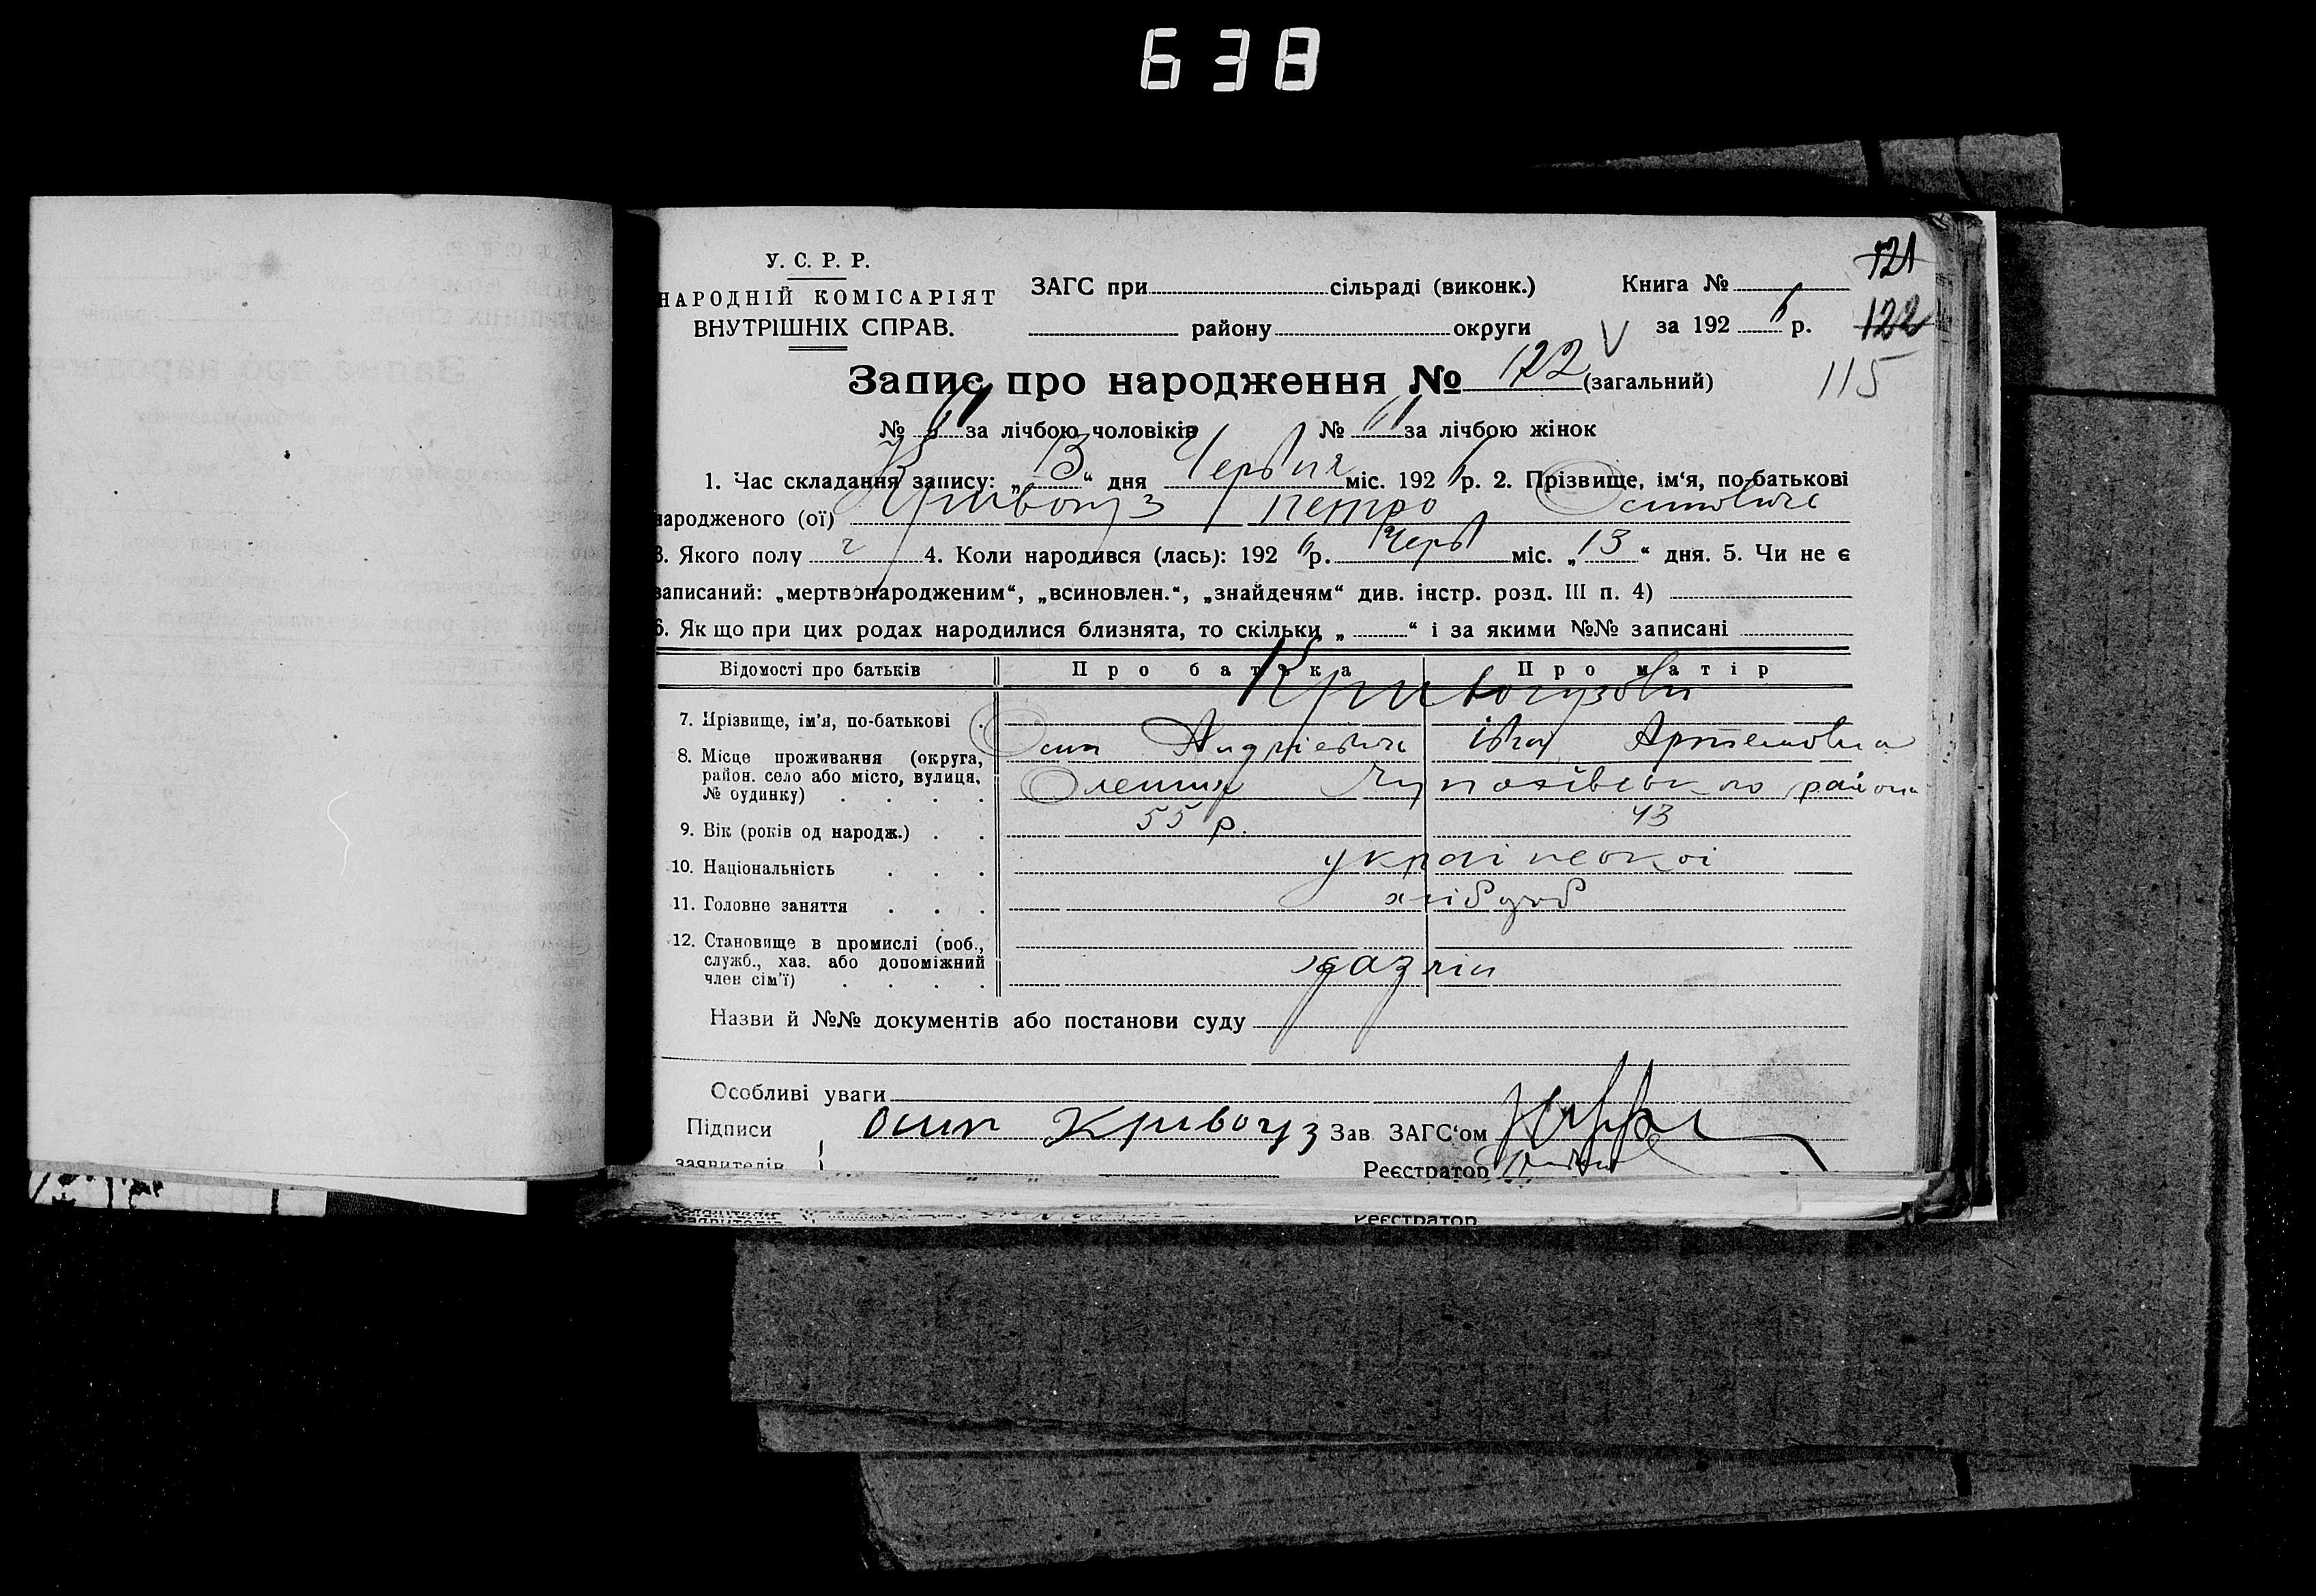 638
У. С. Р. Р.
НАРОДНІЙ КОМІСАРІЯТ
ВНУТРІШНІХ СПРАВ.
ЗАГС при сільраді (виконк.)
району округи
Книга №
за 1926 р.
121
122
115
Запис про народження № 122 (загальний)
№ 61 за лічбою чоловіків № 61 за лічбою жінок
1. Час складання запису: „13“ дня Червня міс. 1926 р. 2. Прізвище, ім‘я, по-батькові
народженого (ої) Кривогуз Петро Осипович
3. Якого полу ч 4. Коли народився (лась): 1926 р. Черв міс. „13“ дня. 5. Чи не є
записаний: „мертвонародженим“, „всиновлен.“, „знайденям“ див. інстр. розд. III п. 4)
6. Якщо при цих родах народилися близнята, то скільки „ “ і за якими №№ записані
Відомості про батьків Про батька Про матір
Кривогузови
7. Прізвище, ім‘я, по-батькові . Осип Андрієвич Івга Артемовна
8. Місце проживання (округа, район. село або місто, вулиця, № будинку) . . . . Олешня Чупахівського района
9. Вік (років од народж.) . . 55 р. 43
10. Національність . . . української
11. Головне заняття . . . хлібороб
12. Становище в промислі (роб., служб., хаз. або допоміжний член сім‘ї) . . . . хазяін
Назви й №№ документів або постанови суду
Особливі уваги
Підписи Осип Кривогуз Зав ЗАГС‘ом
заявителів Реєстратор
Реєстратор